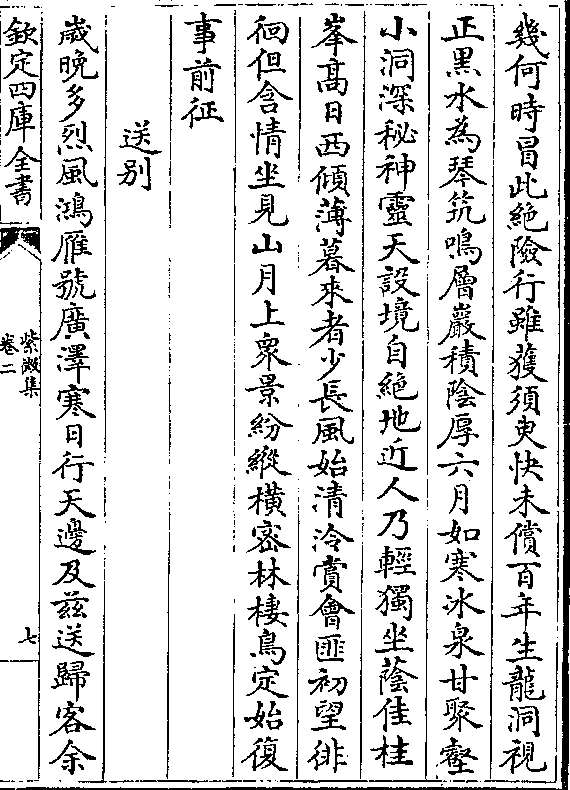 幾何時冒此絶險行雖獲須臾快未償百年生龍洞視
正黒水為琴筑鳴層巖積陰厚六月如寒冰泉甘聚壑
小洞深秘神靈天設境自絶地近人乃輕獨坐蔭佳桂
峯髙日西傾薄暮來者少長風始清泠賞會匪初望徘
徊但含情坐見山月上衆景紛縱横宻林棲鳥定始復
事前征
送別
歲晚多烈風鴻雁號廣澤寒日行天邊及兹送歸客余
欽定四庫全書
紫微集
卷二
七